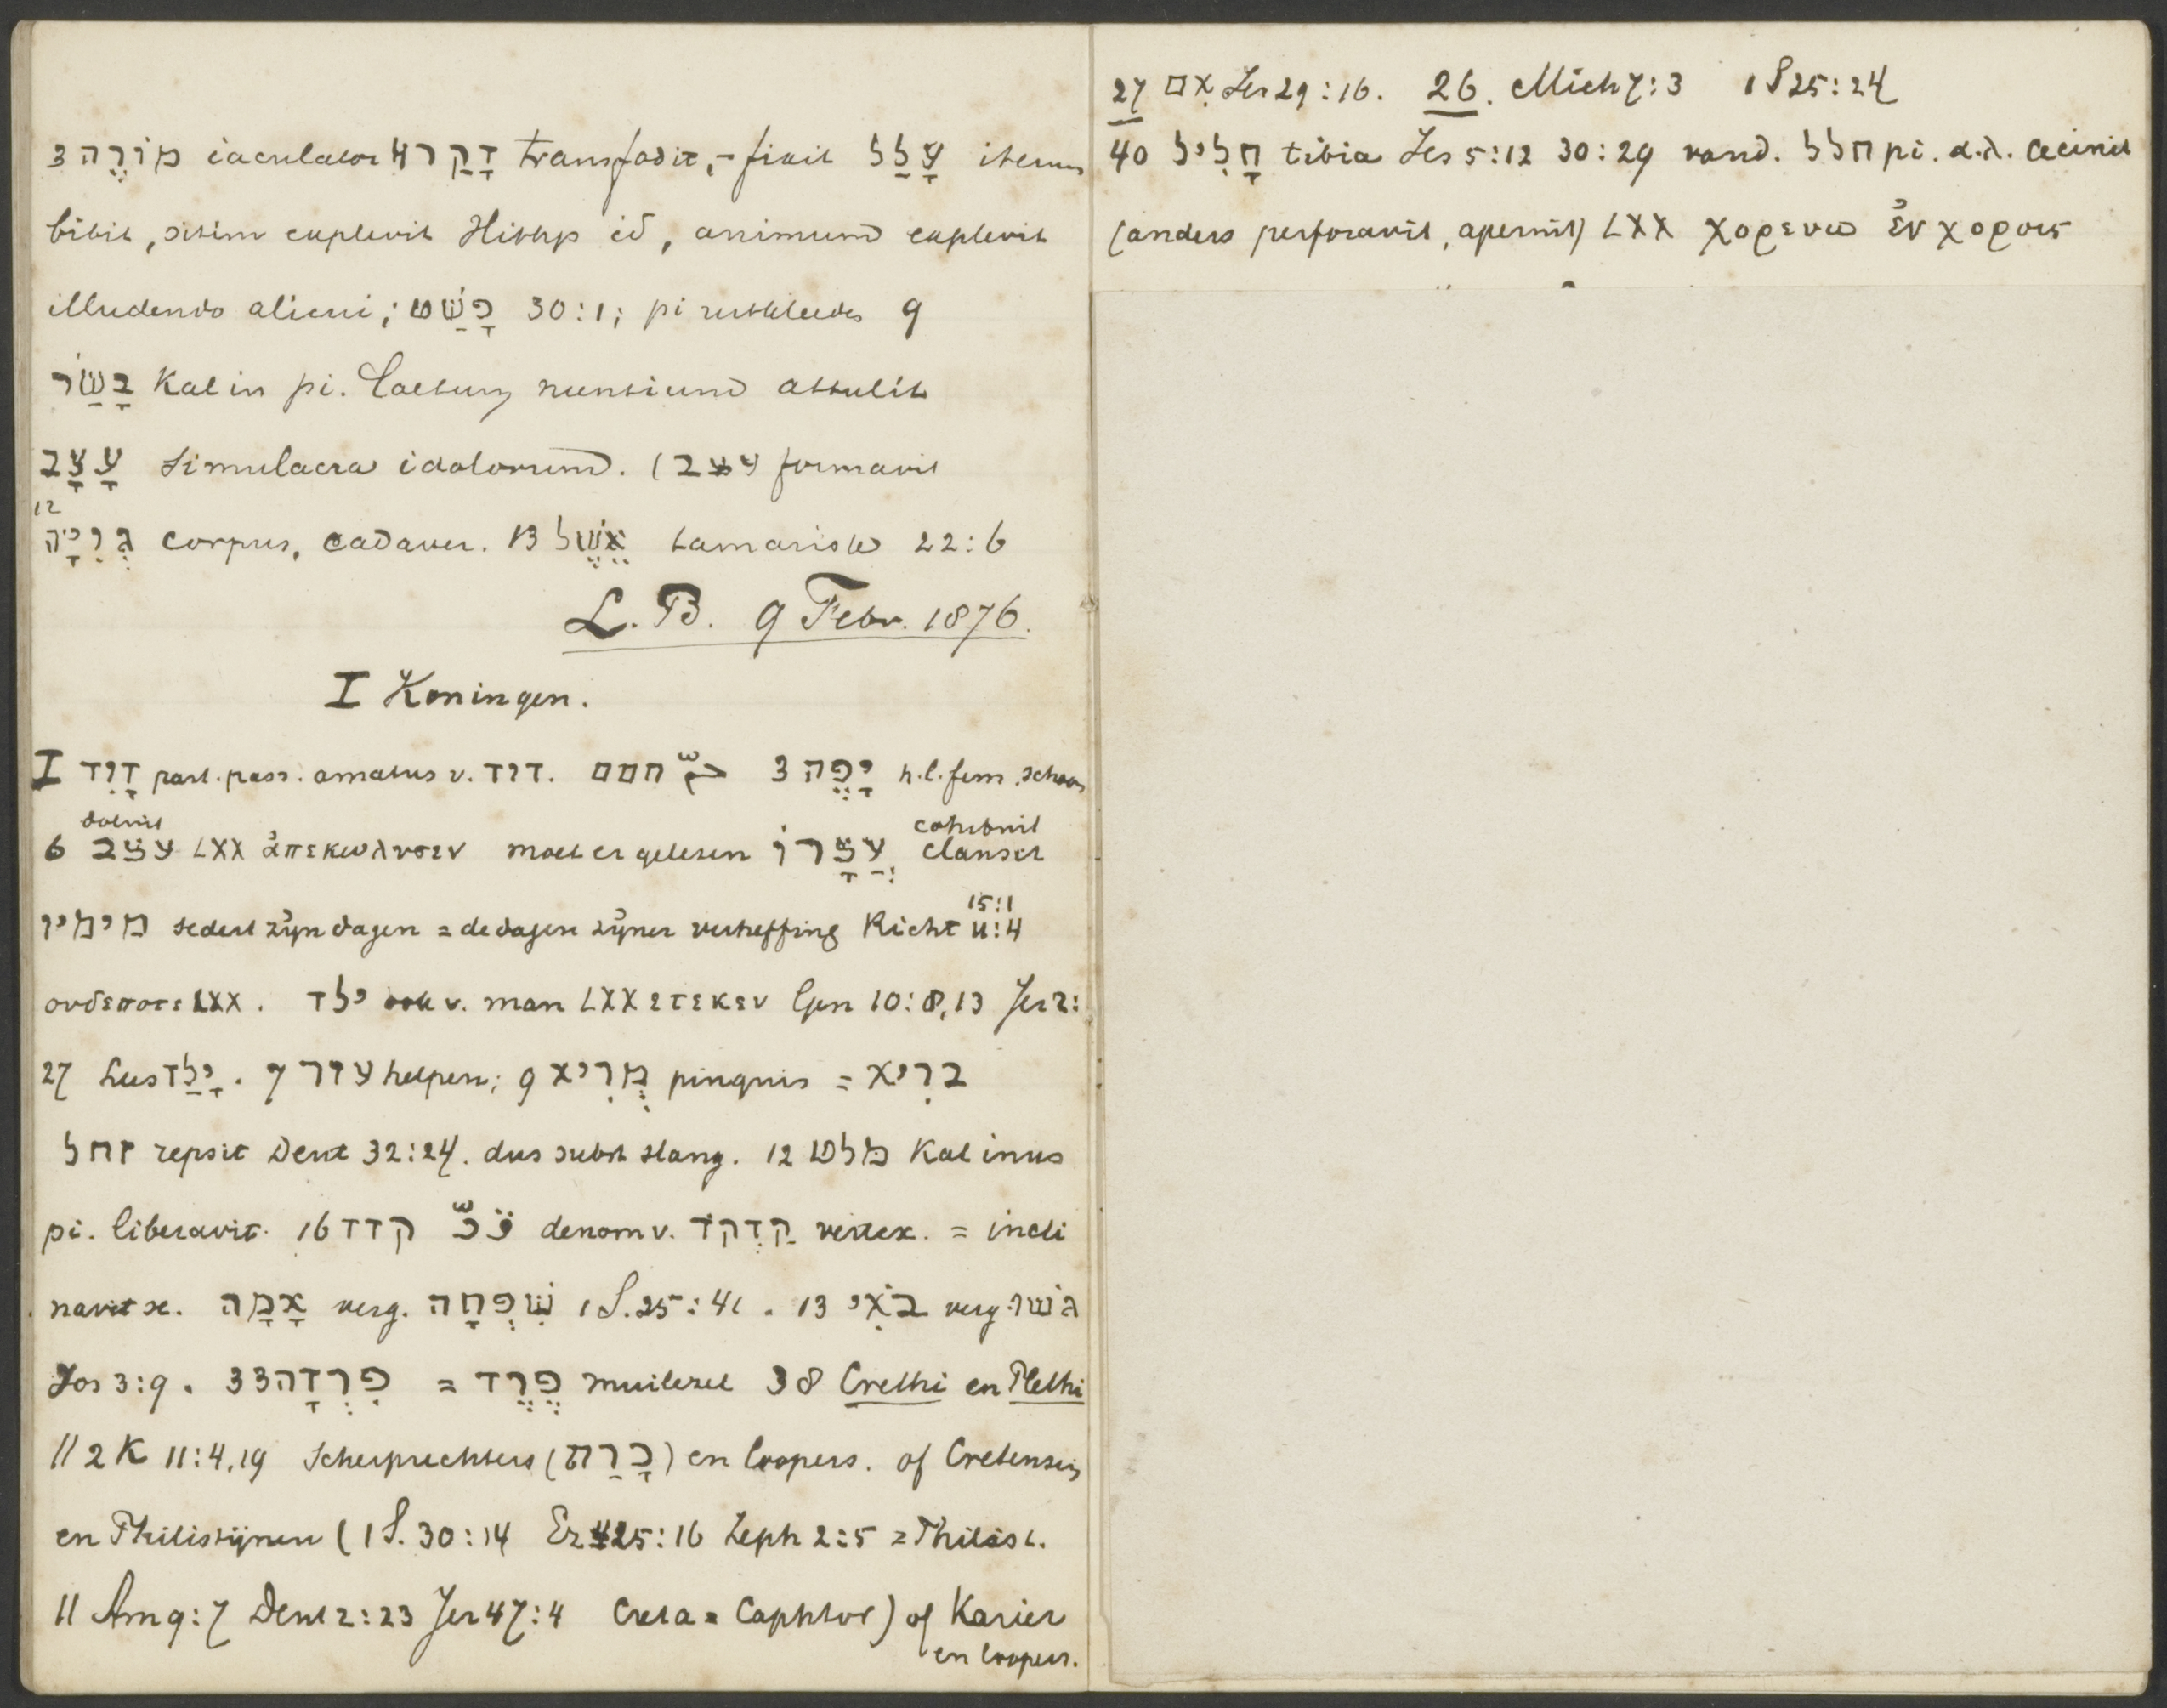 3 מוֹרֶה iaculator 4 דָקַר transfodit, - fixit עָלַל iterum
bibit, sitim explevit Hithp id, animum explevit
illudendo alicui; פָשַׁט 30:1; pi 9
בָשַׂר Kal in pi. Laetum nuntium attulit
עָצָב simulacra idolorum. (עצב formavit
12
גְוִיָה corpus, cadaver. 13 אֶשֶׁל tamarisk 22:6
L. B. 9 Febr. 1876.
I Koningen.
I דָוִד part. pass. amatus v. דוד. חמם 3 יָפֶה h.l. fem. schoon
doluit cohibuit
6 עצב LXX ἀπεκωλυσεν moet er gelesen עֲצָרוֹ clauser
15:1
מימיו sedert zijn dagen = de dagen zijner verheffing Richt 11:4
ουδεποτε LXX. ילד ook v. man LXX ετεκεν Gen 10:8,13 Jer 2:
27 Lus יָלַד. 7 עזר helpen; 9 מְרִיא pinguis = ברִיא
זחל repsit Deut 32:24. dus subst slang. 12 מלט Kal inus
pi. liberavit. 16 קדד denom v. קָדְקֹד vertex. = incli
navit se. אָמָה verg. שִׁפְחָה 1 S. 25:41. 13 בֹאִי verg. גשׁו
Jos 3:9. 33 פִרְדָה = פֶרֶד muilezel 38 Crethi en Plethi
|| 2 K 11:4,19 Scherprechters (כָרַת) en loopers. of Cretensen
en Philistijnen (1 S. 30:14 Ez 25:16 Zeph 2:5 = Philist.
|| Am 9:7 Deut 2:23 Jer 47:4 Creta = Caphtor) of Karier
en loopers.
27 אִם Jer 29:16. 26. Mich 7:3 1 S 25:24
40 חָלִיל tibia Jes 5:12 30:29 vand. חלל pi. α.λ. cecinit
(anders perforavit, aperuit) LXX χορευω ἐν χοροις